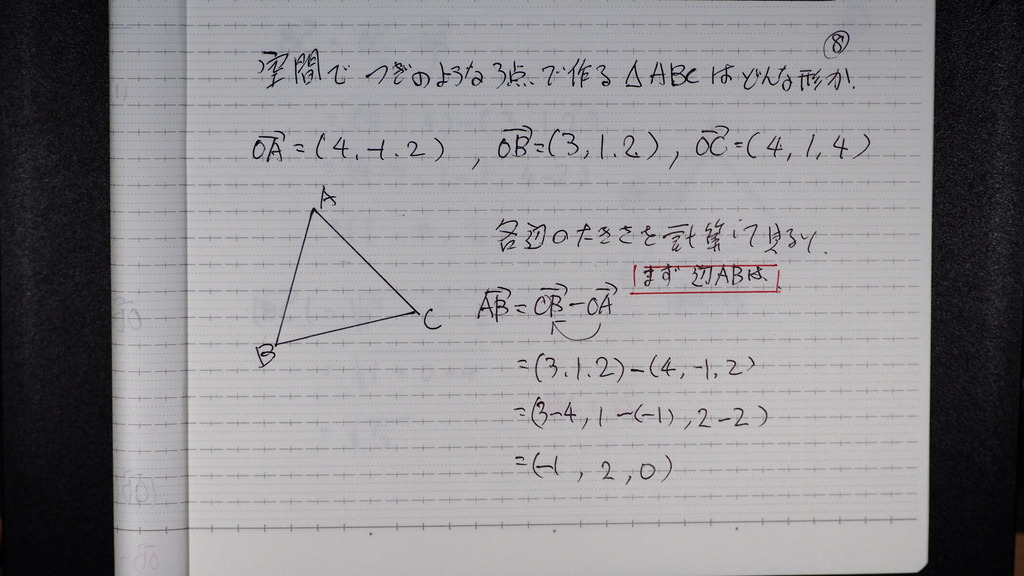 ⑧
空間で つぎのような3点で作る △ABCはどんな形か.
OA=(4,-1,2), OB=(3,1,2), OC=(4,1,4)
A
B
C
各辺の大きさを計算して見る
まず 辺ABは
AB=OB-OA
=(3,1,2)-(4,-1,2)
=(3-4, 1-(-1), 2-2)
=(-1, 2, 0)